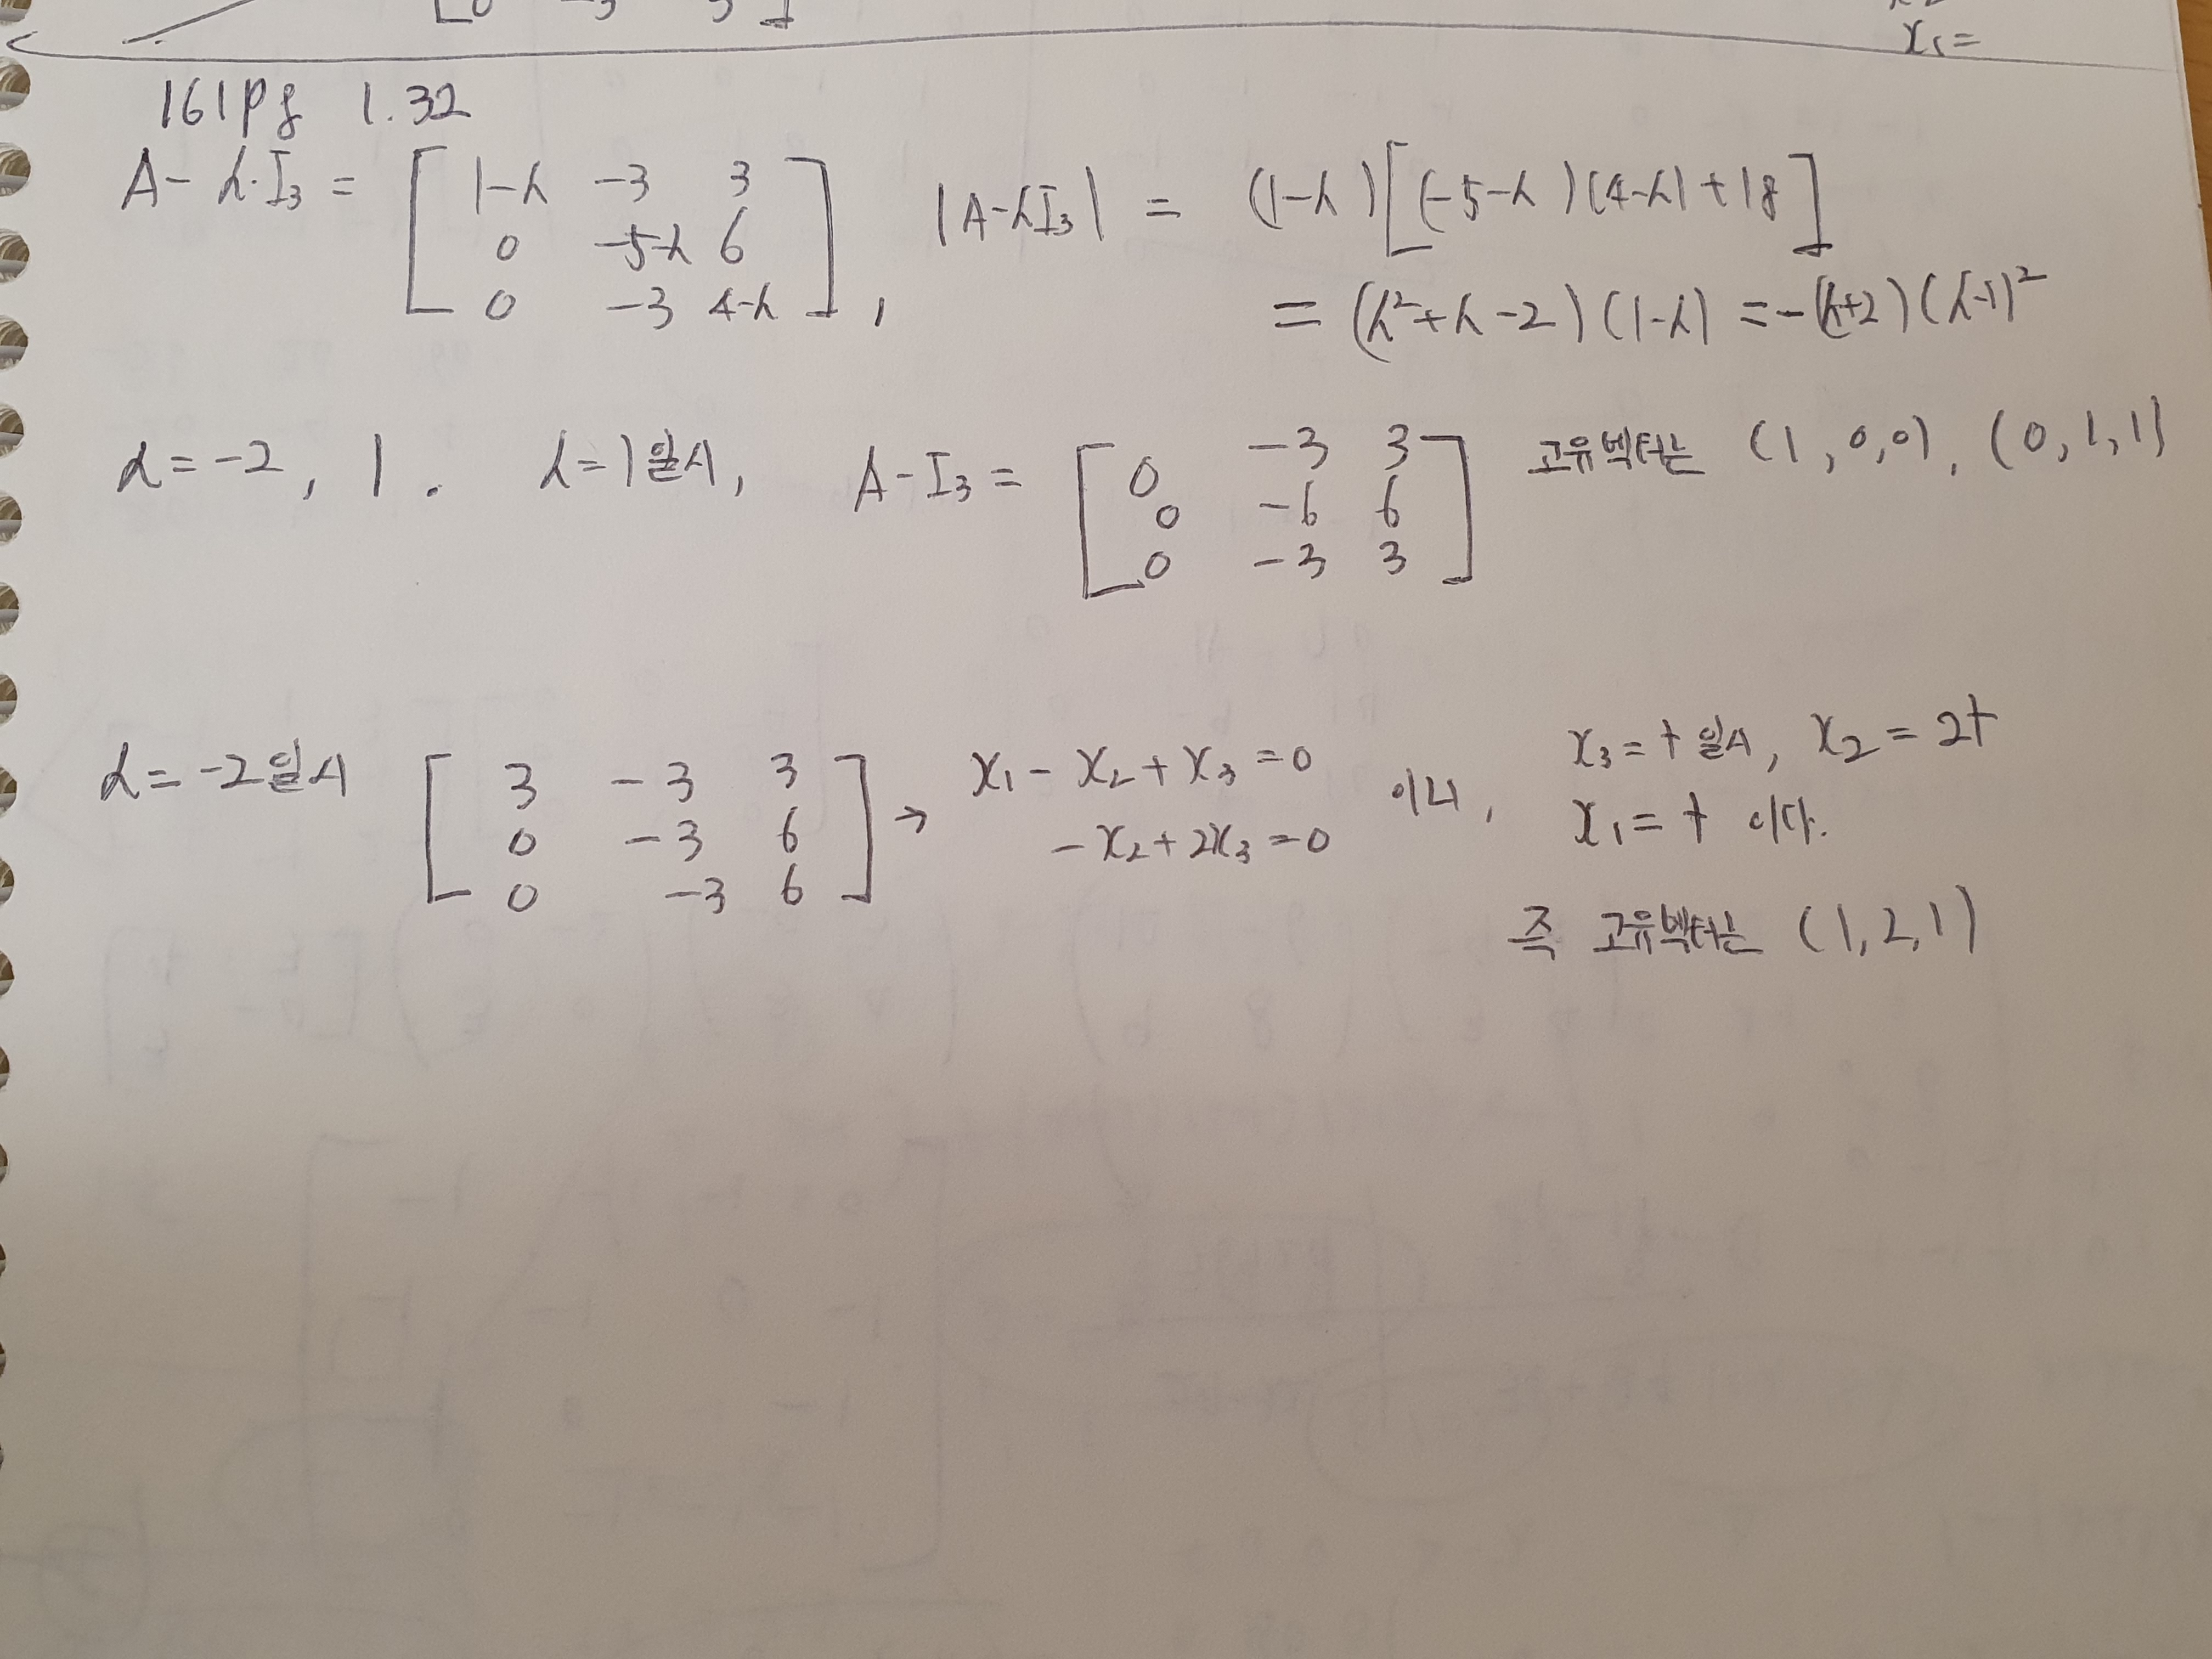 [0 -3 3]
x₁=
161pg 1.32
A-λ·I₃ = [1-λ -3 3
0 -5-λ 6
0 -3 4-λ],
|A-λI₃| = (1-λ)[(-5-λ)(4-λ)+18]
= (λ²+λ-2)(1-λ) = -(λ+2)(λ-1)²
λ=-2, 1. λ=1일시, A-I₃ = [0 -3 3
0 -6 6
0 -3 3]
고유벡터는 (1,0,0), (0,1,1)
λ=-2일시 [3 -3 3
0 -3 6
0 -3 6]
→ x₁-x₂+x₃=0
-x₂+2x₃=0
이니, x₃=t일시, x₂=2t
x₁=t 이다.
즉 고유벡터는 (1,2,1)